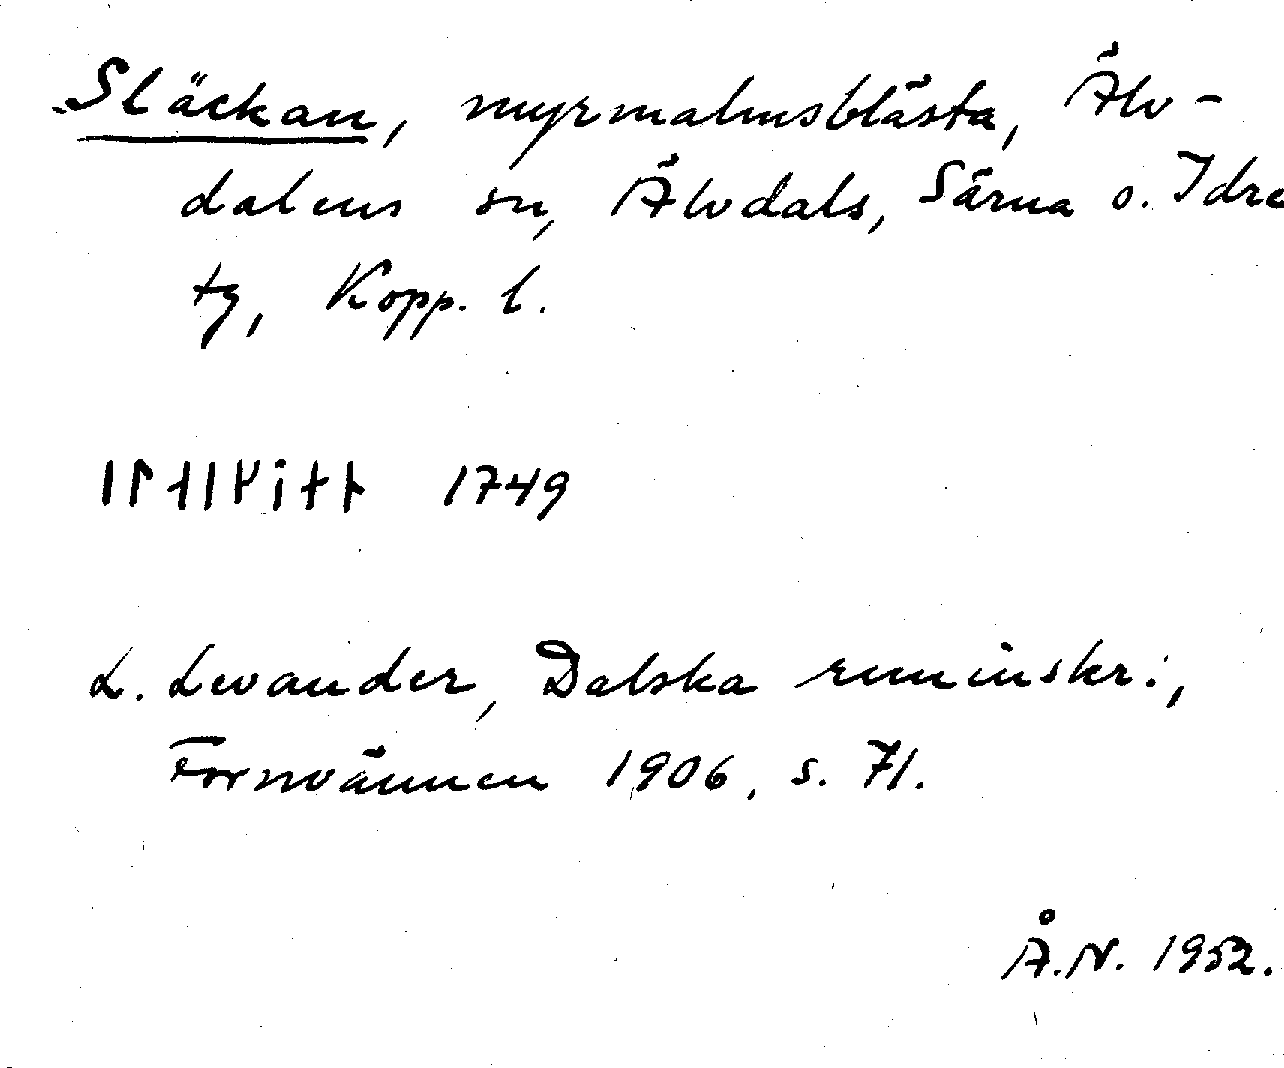 Släckan, myrmalmsblästa, Älv-
dalens sn, Älvdals, Särna o. Idre
tg, Kopp. l.
ᛁᛚᛆᛁᚴᛂᚾᚿ 1749
L. Levander, Dalska runinskr.,
Fornvännen 1906, s. 71.
Å.N. 1952.